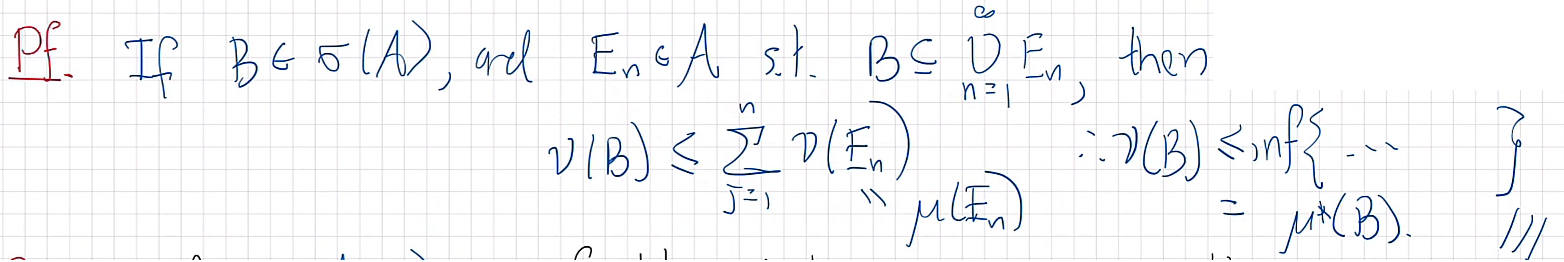 Pf. If B ∈ σ(A), and E_n ∈ A s.t. B ⊆ ∪_{n=1}^{∞} E_n, then
ν(B) ≤ Σ_{j=1}^{n} ν(E_n) ∴ ν(B) ≤ inf{ ... }
= μ(E_n) = μ*(B). ///